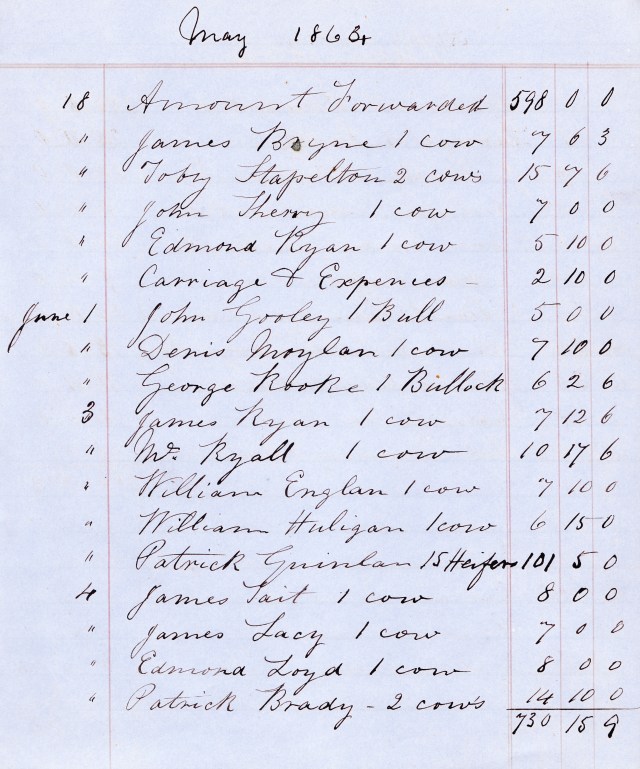 May 1863
18 Amount Forwarded 598 0 0
" James Bryne 1 cow 7 6 3
" Toby Stapelton 2 cows 15 7 6
" John Sherry 1 cow 7 0 0
" Edmond Ryan 1 cow 5 10 0
" Carriage & Expences - 2 10 0
June 1 John Gooley 1 Bull 5 0 0
" Denis Moylan 1 cow 7 10 0
" George Rooke 1 Bullock 6 2 6
3 James Ryan 1 cow 7 12 6
" Mr. Ryall 1 cow 10 17 6
" William Englan 1 cow 7 10 0
" William Huligan 1 cow 6 15 0
" Patrick Guinlan 15 Heifers 101 5 0
4 James Tait 1 cow 8 0 0
" James Lacy 1 cow 7 0 0
" Edmond Loyd 1 cow 8 0 0
" Patrick Brady - 2 cows 14 10 0
730 15 9